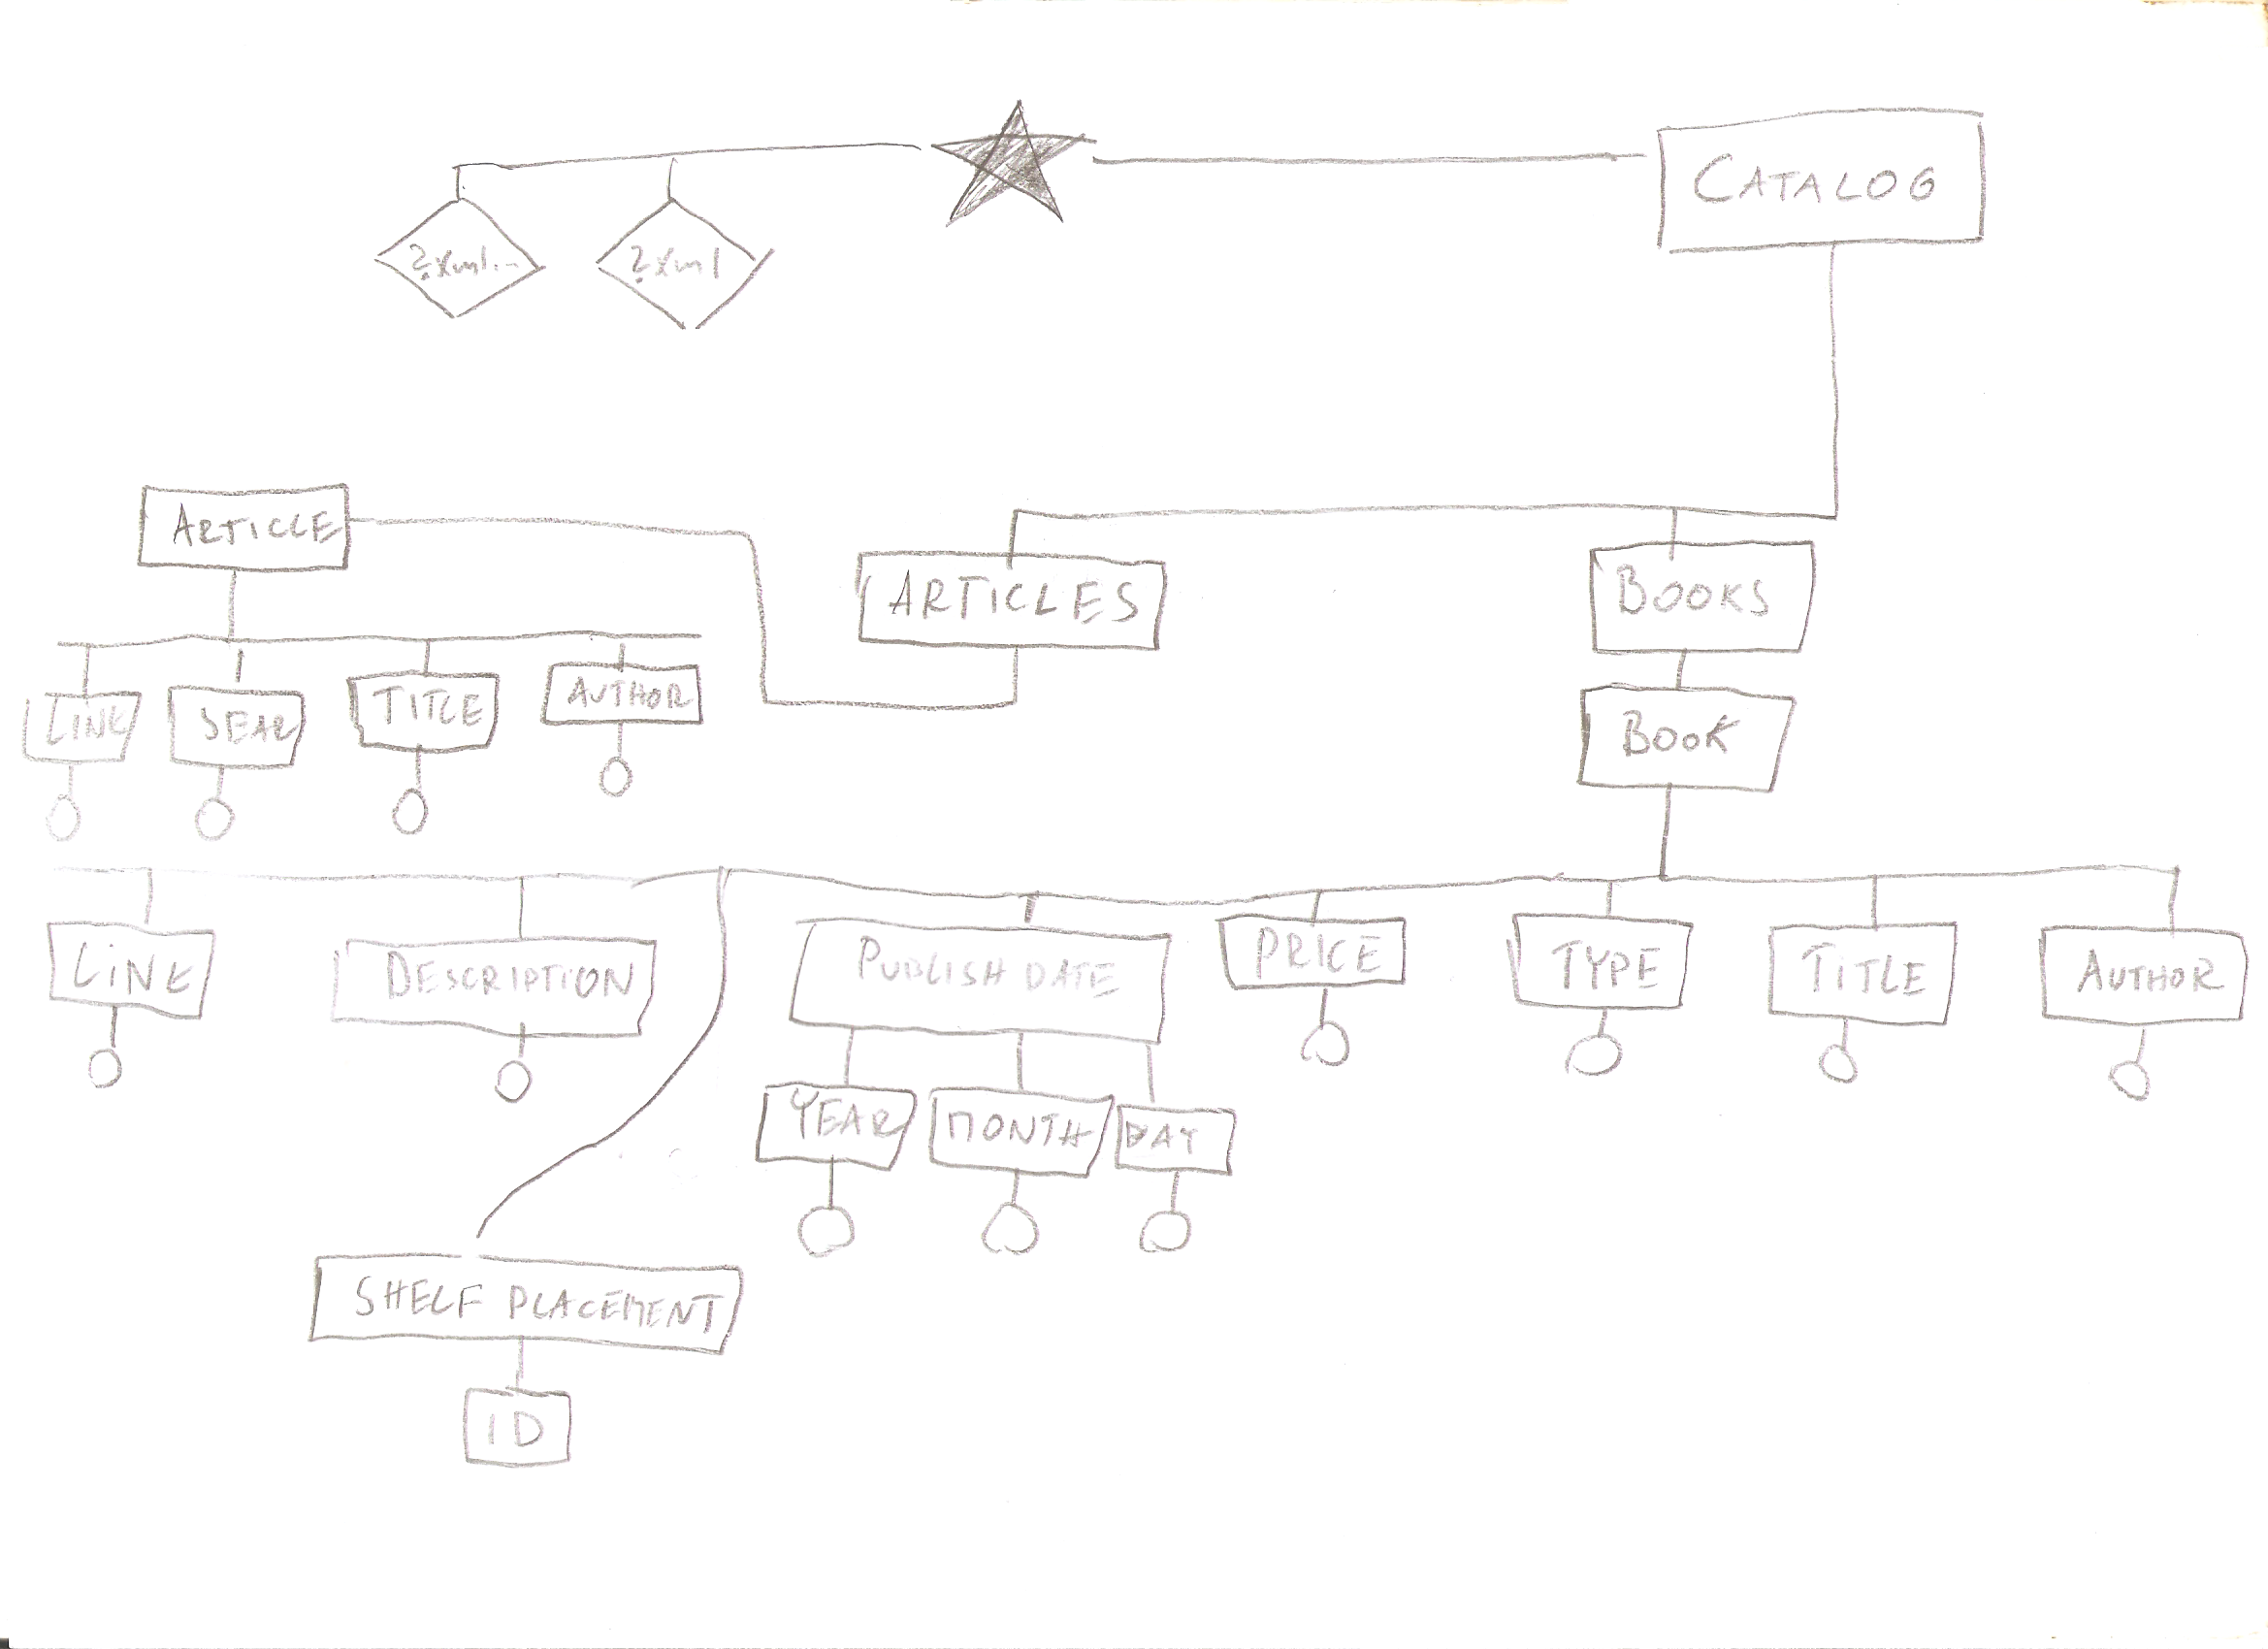 CATALOG
?xml...
?xml
ARTICLE
ARTICLES
BOOKS
LINK
YEAR
TITLE
AUTHOR
BOOK
LINK
DESCRIPTION
PUBLISH DATE
PRICE
TYPE
TITLE
AUTHOR
YEAR
MONTH
DAY
SHELF PLACEMENT
ID